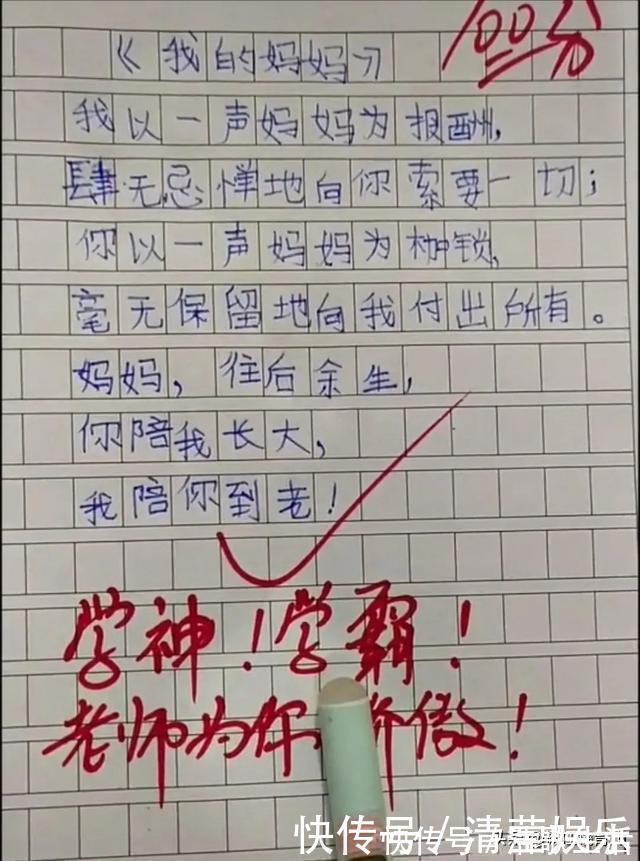 《我的妈妈》
100分
我以一声妈妈为报酬,
肆无忌惮地向你索要一切;
你以一声妈妈为枷锁,
毫无保留地向我付出所有。
妈妈,往后余生,
你陪我长大,
我陪你到老!
学神!学霸!
老师为你 傲!
快传号/清蒸娱乐